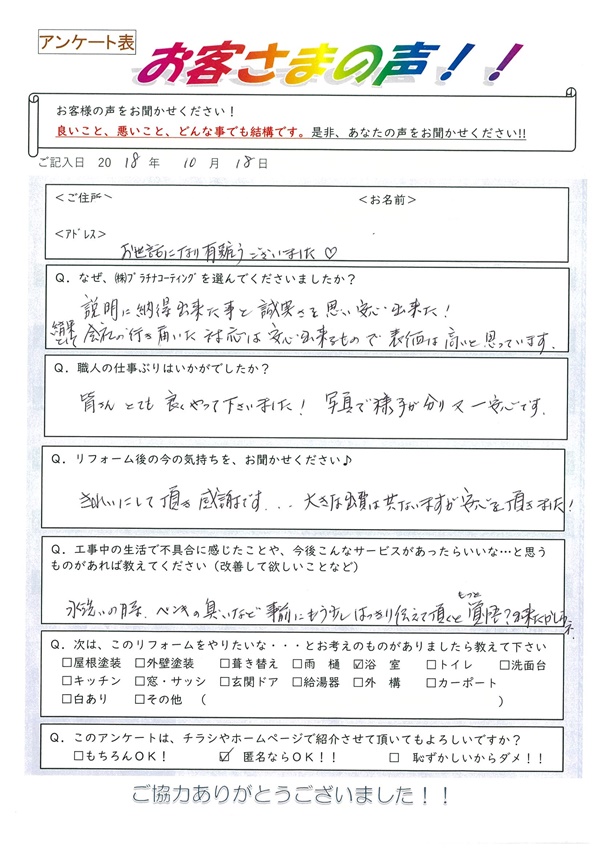 アンケート表
お客さまの声！！
お客様の声をお聞かせください！
良いこと、悪いこと、どんな事でも結構です。是非、あなたの声をお聞かせください!!
ご記入日 2018年 10月 18日
＜ご住所＞ ＜お名前＞
＜ｱﾄﾞﾚｽ＞
お世話になり有難うございました♡
Q．なぜ、㈱ﾌﾟﾗﾁﾅｺｰﾃｨﾝｸﾞを選んでくださいましたか？
説明に納得出来た事と誠実さを思い安心出来た！
結果として会社の行き届いた対応は安心出来るもので表価は高いと思っています。
Q．職人の仕事ぶりはいかがでしたか？
皆さんとても良くやって下さいました！ 写真で様子が分り又一安心です．
Q．リフォーム後の今の気持ちを、お聞かせください♪
きれいにして頂き感謝です．．．大きな出費は共ないますが安心を頂きました！
Q．工事中の生活で不具合に感じたことや、今後こんなサービスがあったらいいな…と思う
ものがあれば教えてください（改善して欲しいことなど）
水洗いの時、ペンキの臭いなど事前にもう少しはっきり伝えて頂くともっと覚悟？出来たかも
Q．次は、このリフォームをやりたいな・・・とお考えのものがありましたら教えて下さい
□屋根塗装 □外壁塗装 □葺き替え □雨 樋 ☑浴 室 □トイレ □洗面台
□キッチン □窓・サッシ □玄関ドア □給湯器 □外 構 □カーポート
□白あり □その他 （ ）
Q．このアンケートは、チラシやホームページで紹介させて頂いてもよろしいですか？
□もちろんOK！ ☑ 匿名ならOK！！ □ 恥ずかしいからダメ！！
ご協力ありがとうございました！！